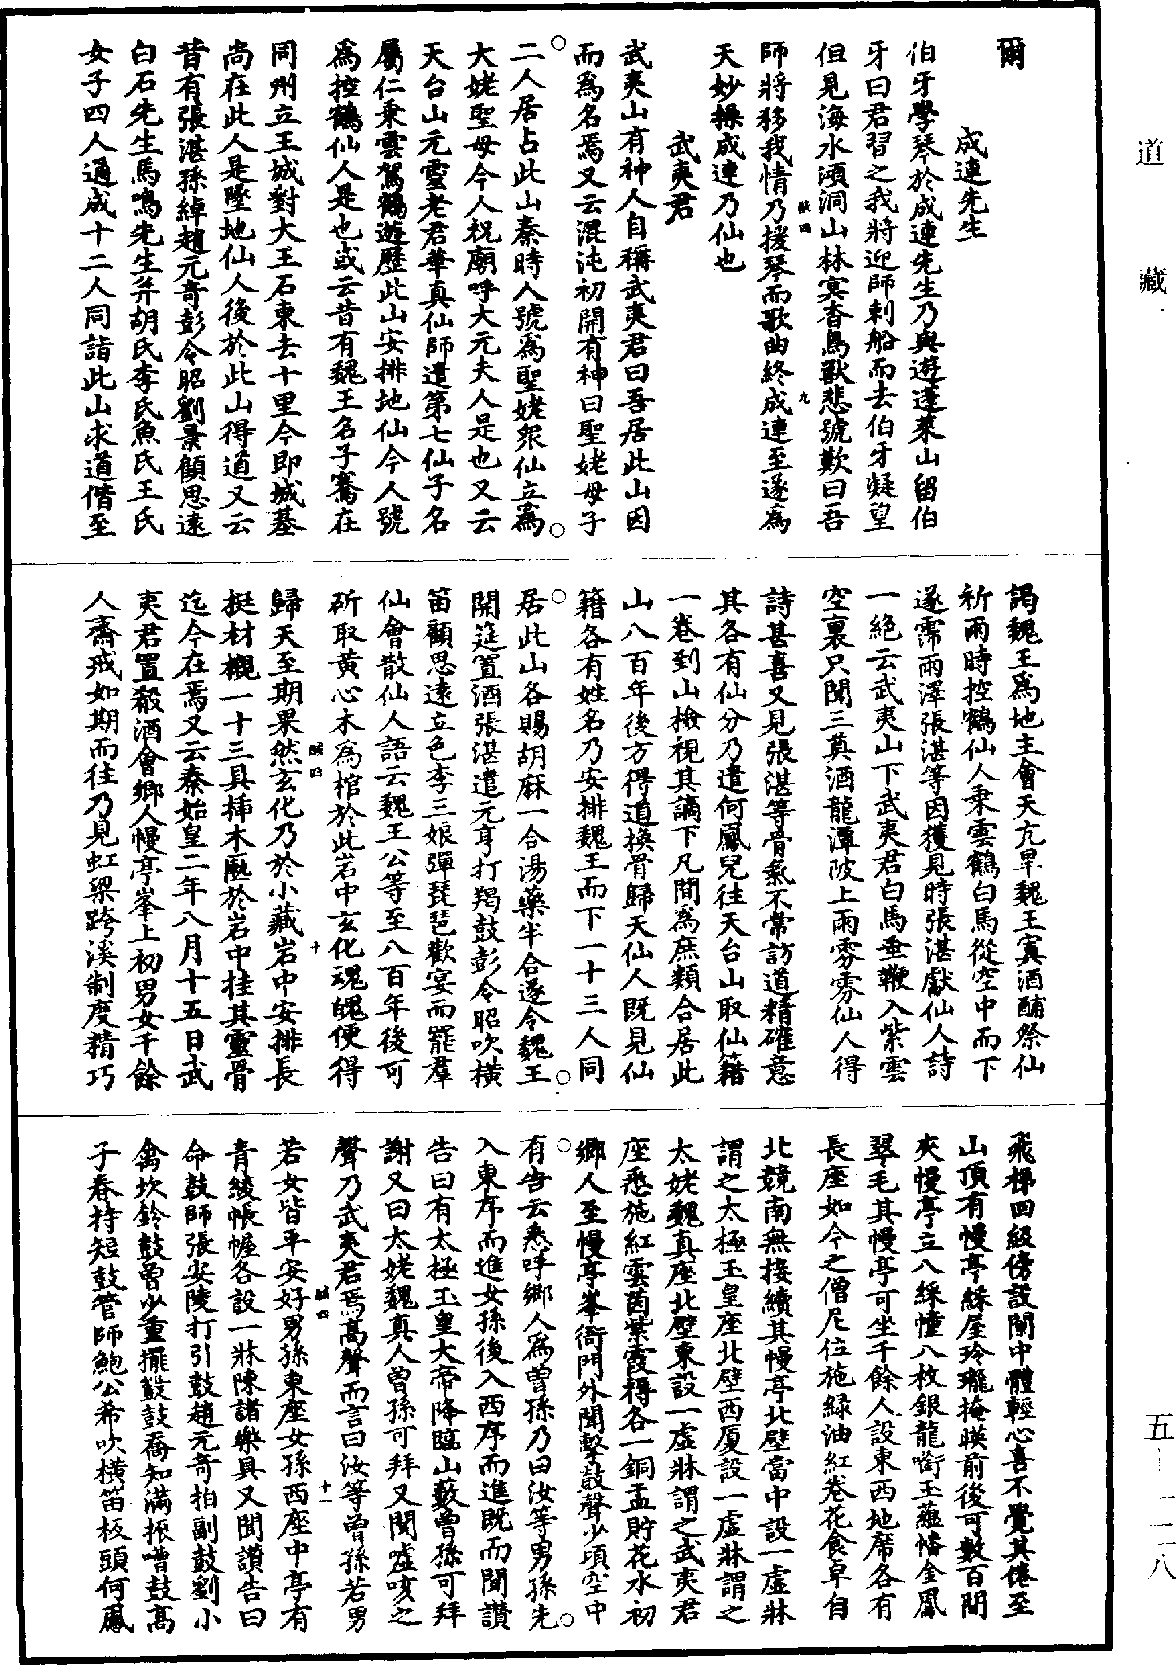 爾
成連先生
伯牙學琴於成連先生乃與遊蓬萊山留伯
牙曰君習之我將迎師刺船而去伯牙凝望
但見海水澒洞山林窅杳鳥獸悲號歎曰吾
師將移我情乃援琴而歌曲終成連至遂為
天妙操成連乃仙也
武夷君
武夷山有神人自稱武夷君曰吾居此山因
而為名焉又云混沌初開有神曰聖姥母子
二人居占此山秦時人號為聖姥眾仙立為
大姥聖母今人祝廟呼大元夫人是也又云
天台山元靈老君華真仙師遣第七仙子名
屬仁乘雲駕鶴遊歷此山安排地仙今人號
為控鶴仙人是也或云昔有魏王名子騫在
同州立王城對大王石東去十里今即城基
尚在此人是墜地仙人後於此山得道又云
昔有張湛孫綽趙元奇彭令昭劉景顧思遠
白石先生馬鳴先生并胡氏李氏魚氏王氏
女子四人通成十二人同詣此山求道偕至
謁魏王為地主會天亢旱魏王寘酒酺祭仙
祈雨時控鶴仙人乘雲鶴白馬從空中而下
遂霈雨澤張湛等因獲見時張湛獻仙人詩
一絕云武夷山下武夷君白馬垂鞭入紫雲
空裏只聞三奠酒龍潭陂上雨雰雰仙人得
詩甚喜又見張湛等骨氣不常訪道精確意
其各有仙分乃遣何鳳兒往天台山取仙籍
一卷到山檢視其謫下凡間為庶類合居此
山八百年後方得道換骨歸天仙人既見仙
籍各有姓名乃安排魏王而下一十三人同
居此山各賜胡麻一合湯藥半合遂令魏王
開筵置酒張湛遣元亨打羯鼓彭令昭吹橫
笛顧思遠立色李三娘彈琵琶歡宴而罷羣
仙會散仙人語云魏王公等至八百年後可
斫取黃心木為棺於此岩中玄化魂魄便得
歸天至期果然玄化乃於小藏岩中安排長
挺材櫬一十三具插木廠於岩中挂其靈骨
迄今在焉又云秦始皇二年八月十五日武
夷君置殽酒會鄉人幔亭峯上初男女千餘
人齋戒如期而往乃見虹梁跨溪制度精巧
飛梯四級傍設闌中體輕心喜不覺其倦至
山頂有幔亭綵屋玲瓏掩暎前後可數百間
夾幔亭立八綵幢八枚銀龍啣玉蘊幡金鳳
翠毛其幔亭可坐千餘人設東西地席各有
長座如今之僧尼位施綠油紅卷花食卓自
北競南無接續其幔亭北壁當中設一虛牀
謂之太極玉皇座北壁西厦設一虛牀謂之
太姥魏真座北壁東設一虛牀謂之武夷君
座悉施紅雲茵紫霞褥各一銅盂貯花水初
鄉人至幔亭峯衙門外聞擊鼓聲少頃空中
有告云悉呼鄉人為曾孫乃曰汝等男孫先
入東序而進女孫後入西序而進既而聞讚
告曰有太極玉皇大帝降臨山藪曾孫可拜
謝又曰太姥魏真人曾孫可拜又聞噓咳之
聲乃武夷君焉高聲而言曰汝等曾孫若男
若女皆平安好男孫東座女孫西座中亭有
青綾帳幄各設一牀陳諸樂具又聞讚告曰
命鼓師張安陵打引鼓趙元奇拍副鼓劉小
禽坎鈴鼓曾少重擺鼗鼓喬知滿振嘈鼓高
子春持短鼓管師鮑公希吹橫笛板頭何鳳
道
藏
五
二一八
九
十
十一